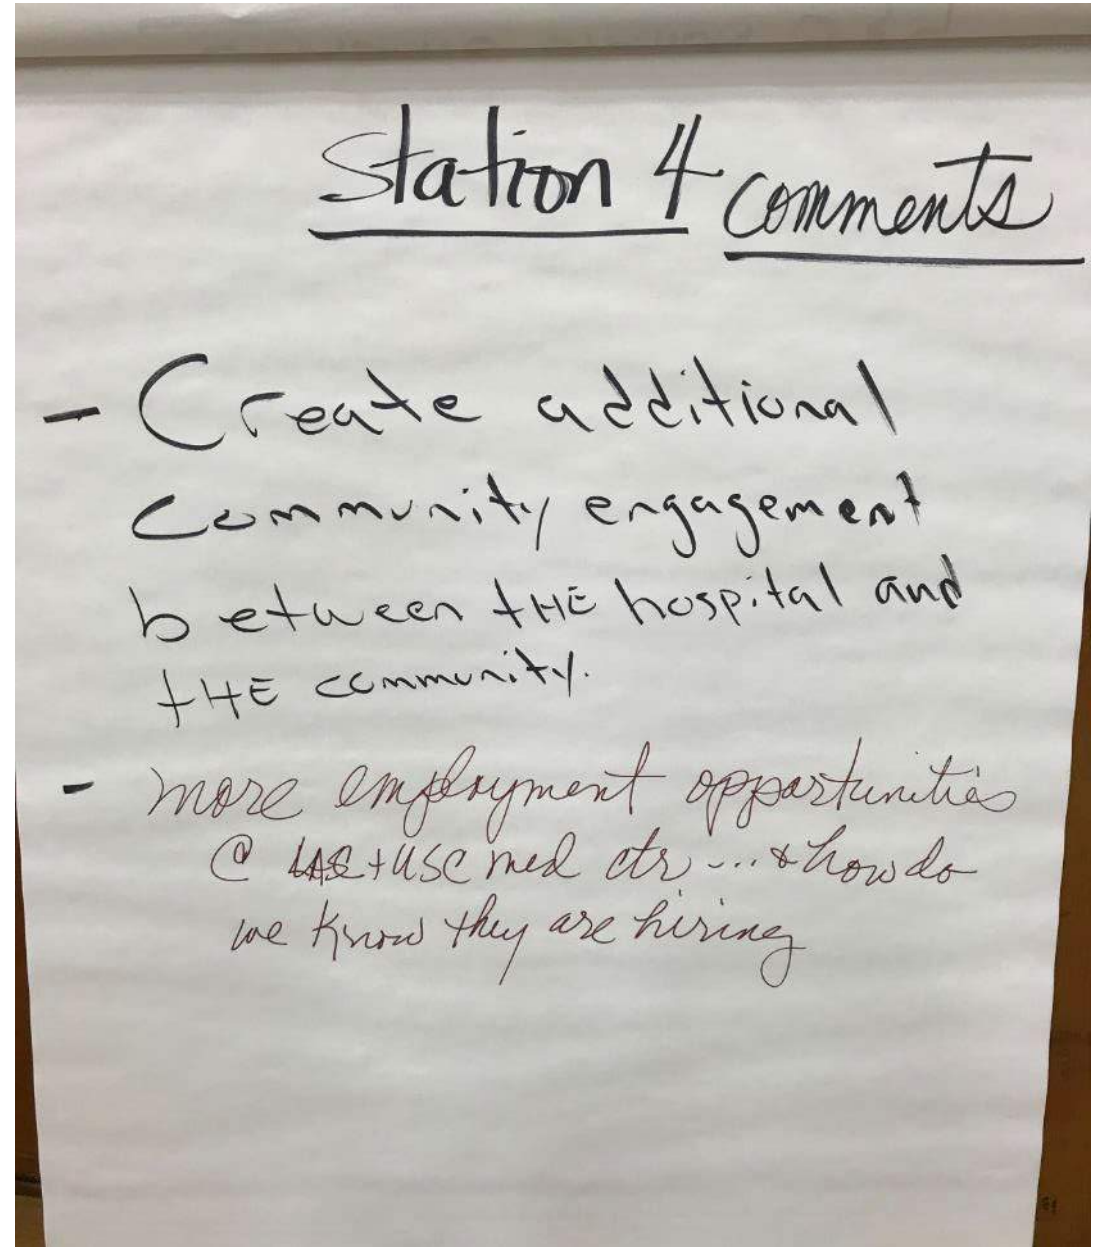 Station 4 comments
- Create additional
community engagement
between tHE hospital and
tHE community.
- more employment opportunities
@ LAC+USC med ctr... & how do
we know they are hiring